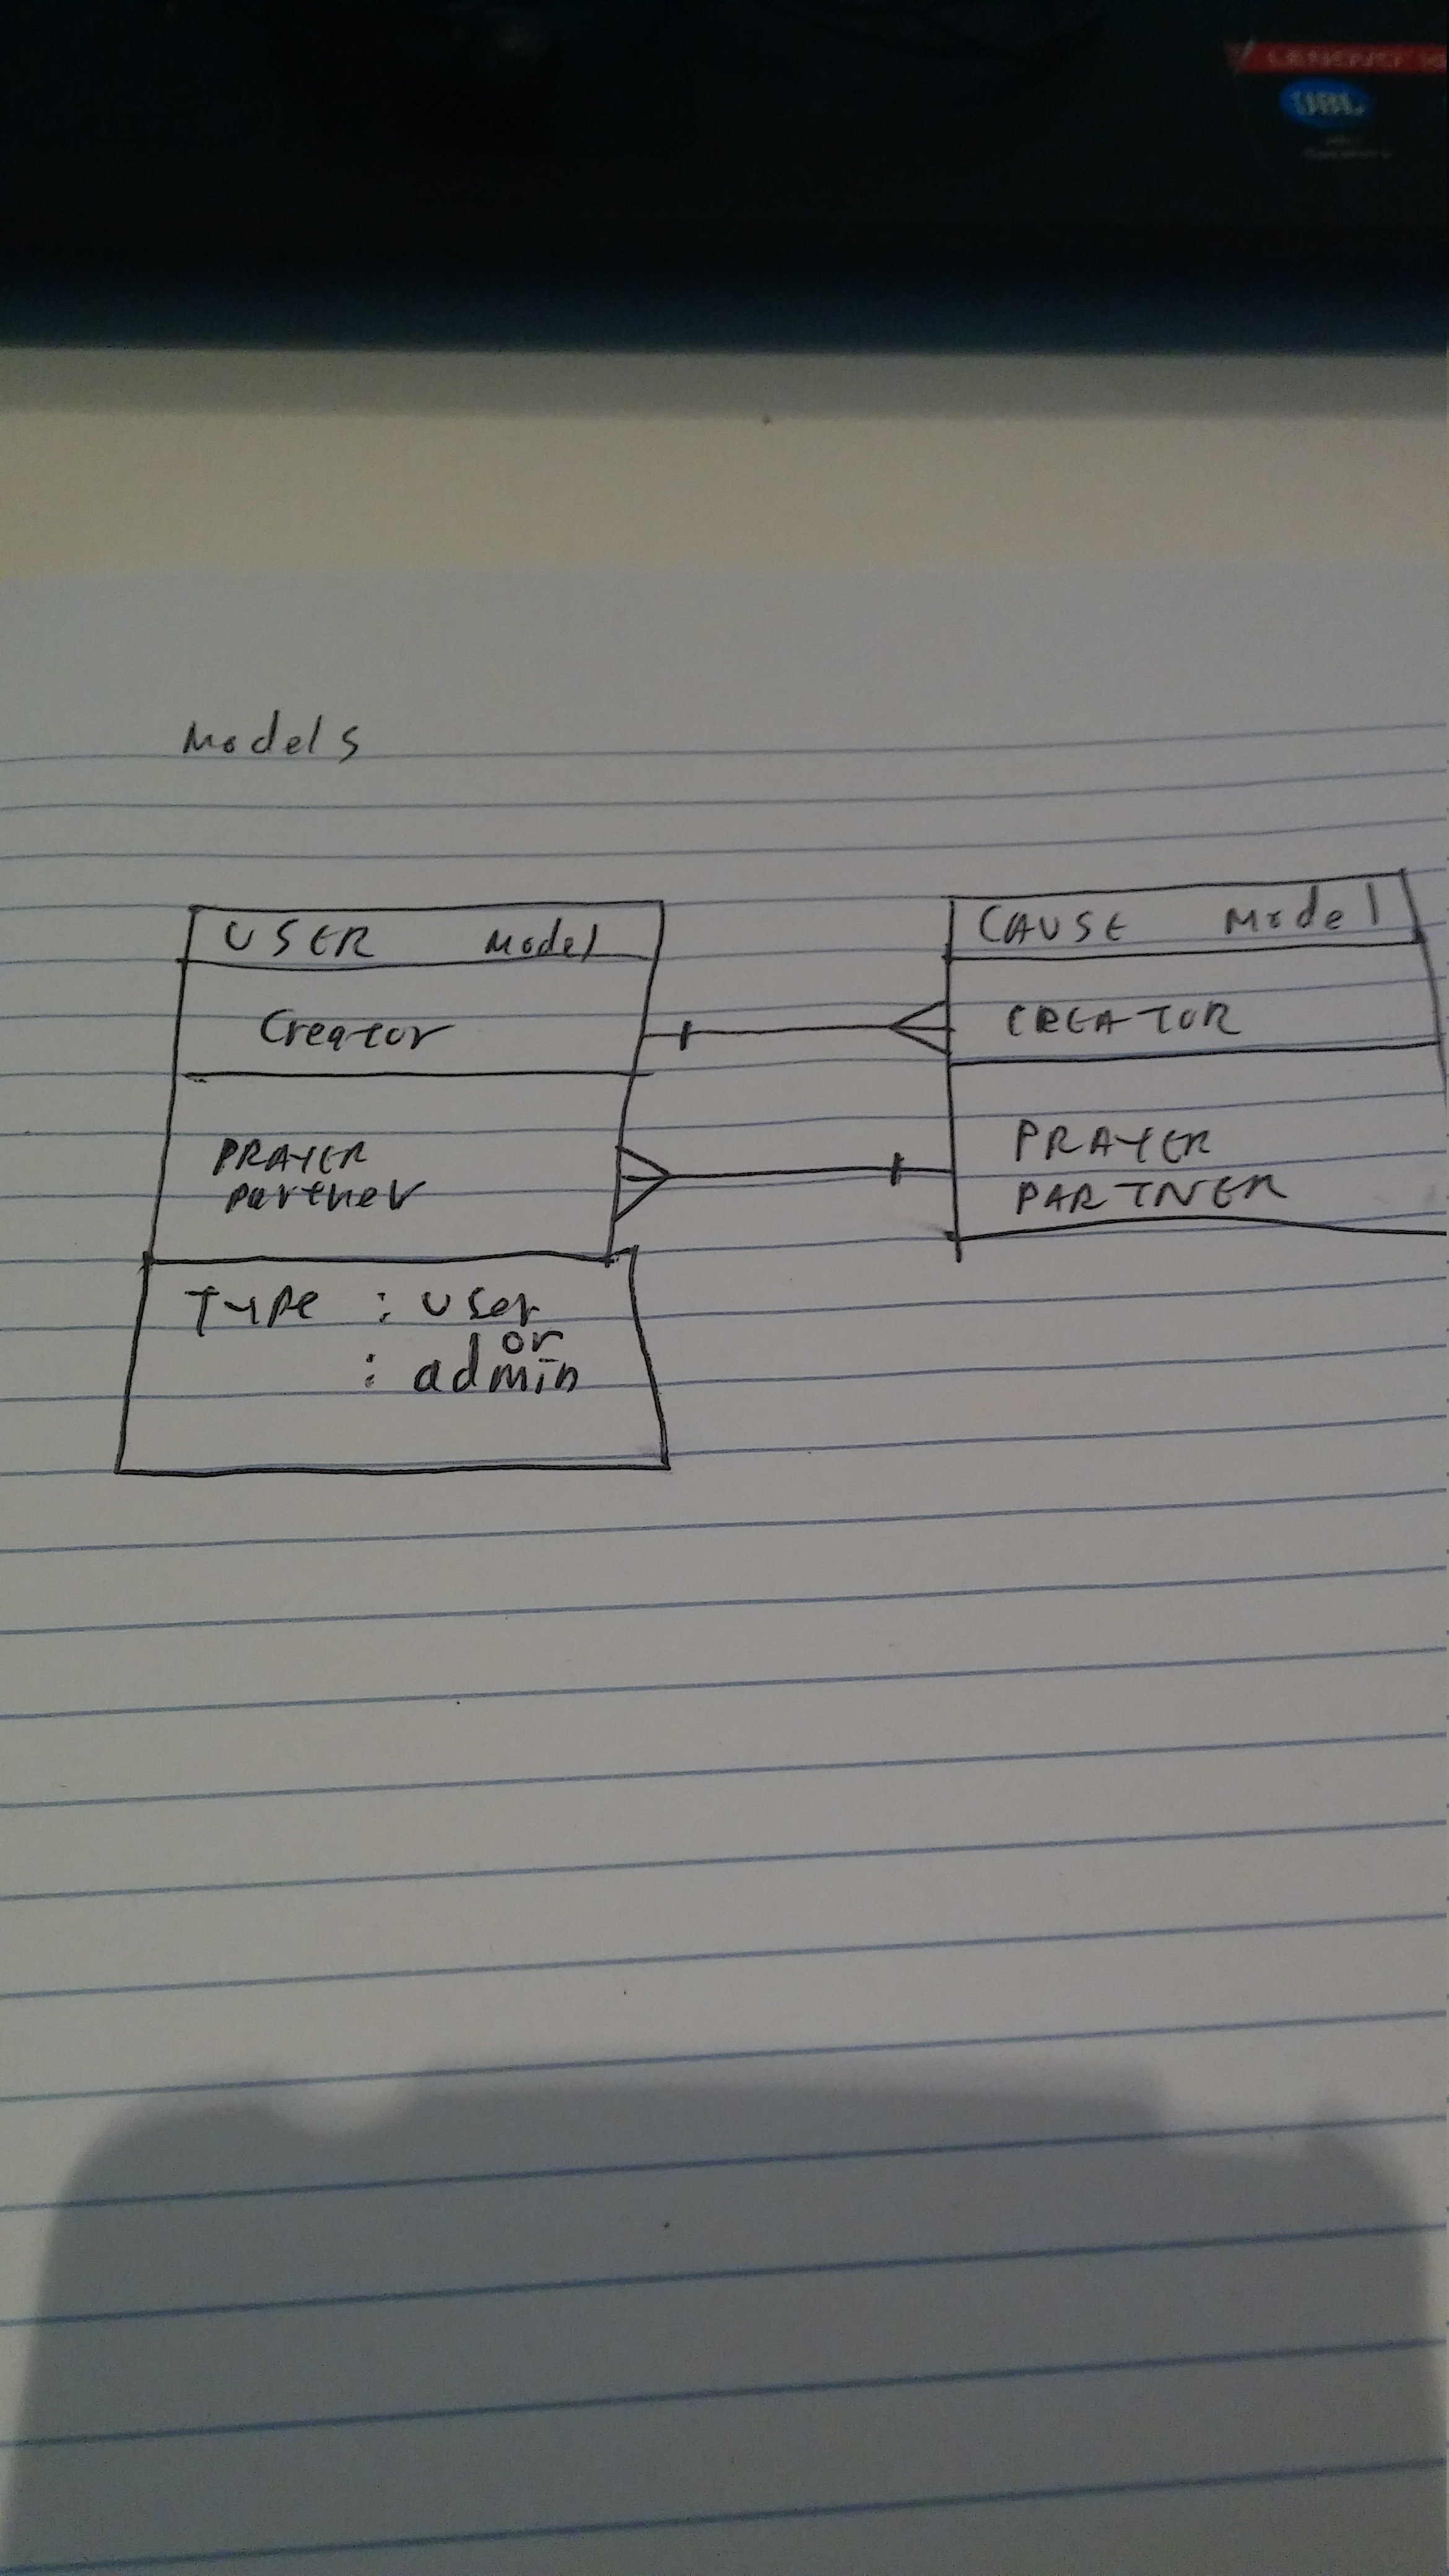 Models
USER Model
Creator
PRAYER
Partner
Type : user
or
: admin
CAUSE Model
CREATOR
PRAYER
PARTNER